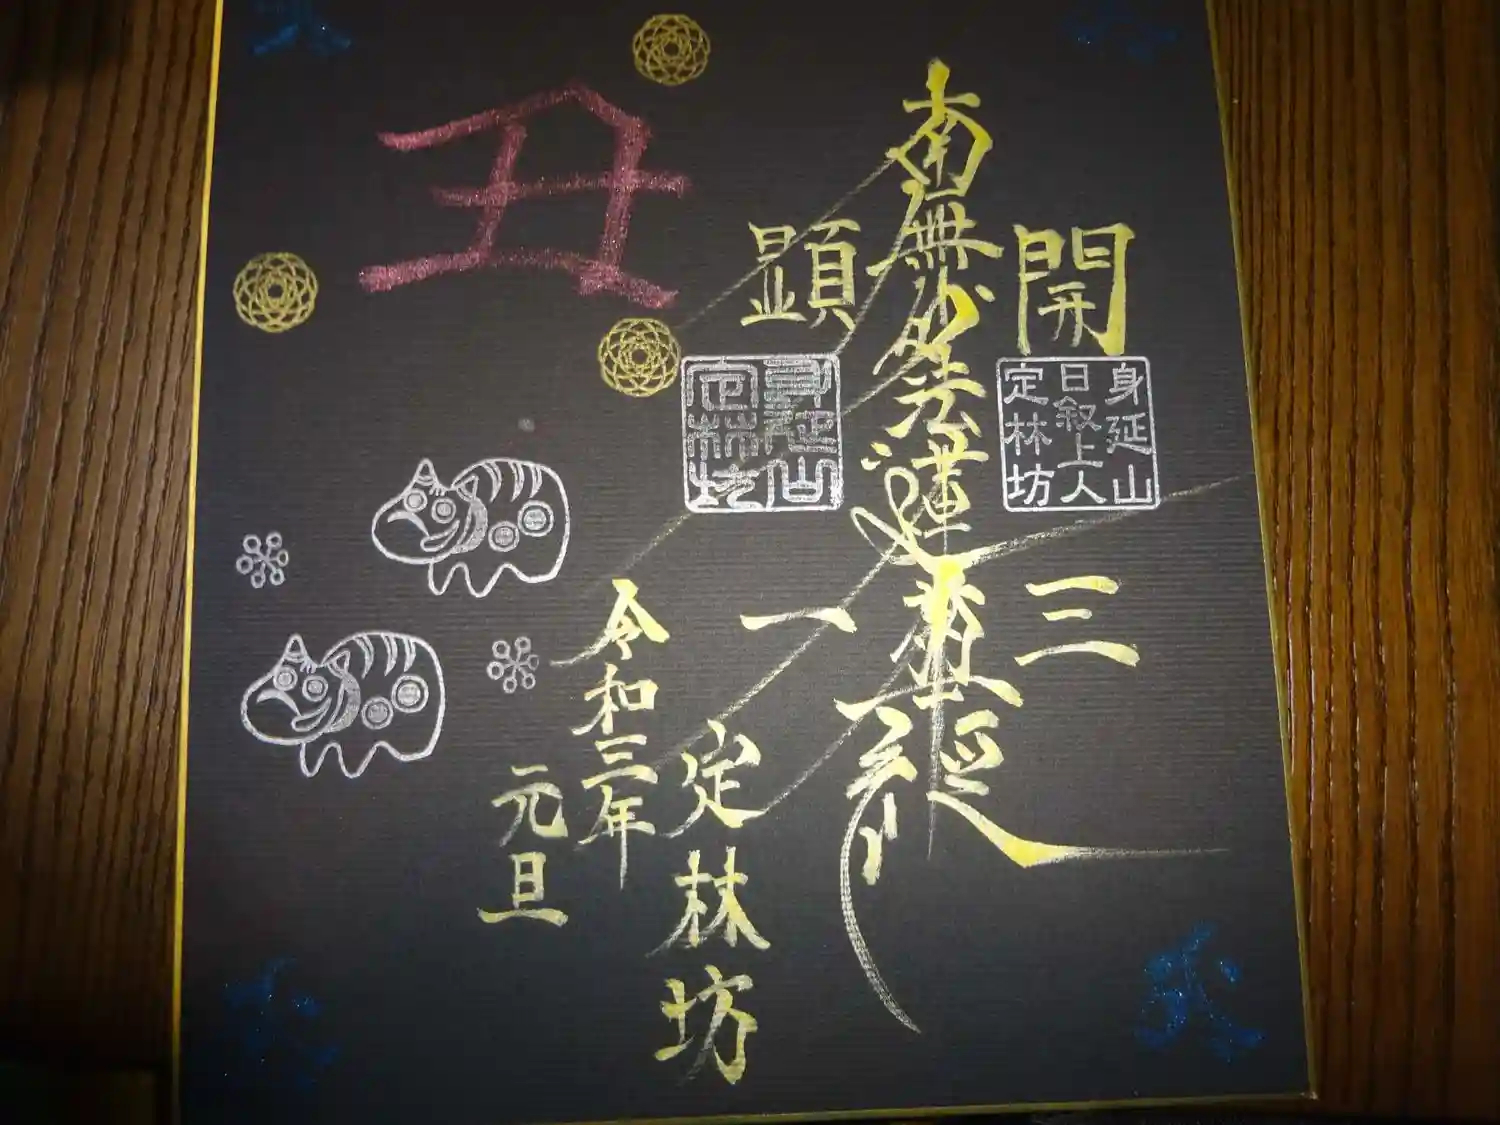 開
三
身延山
日叙上人
定林坊
南無妙法蓮華経
顕
一
身延山
定林坊
定林坊
令和三年
元旦
丑